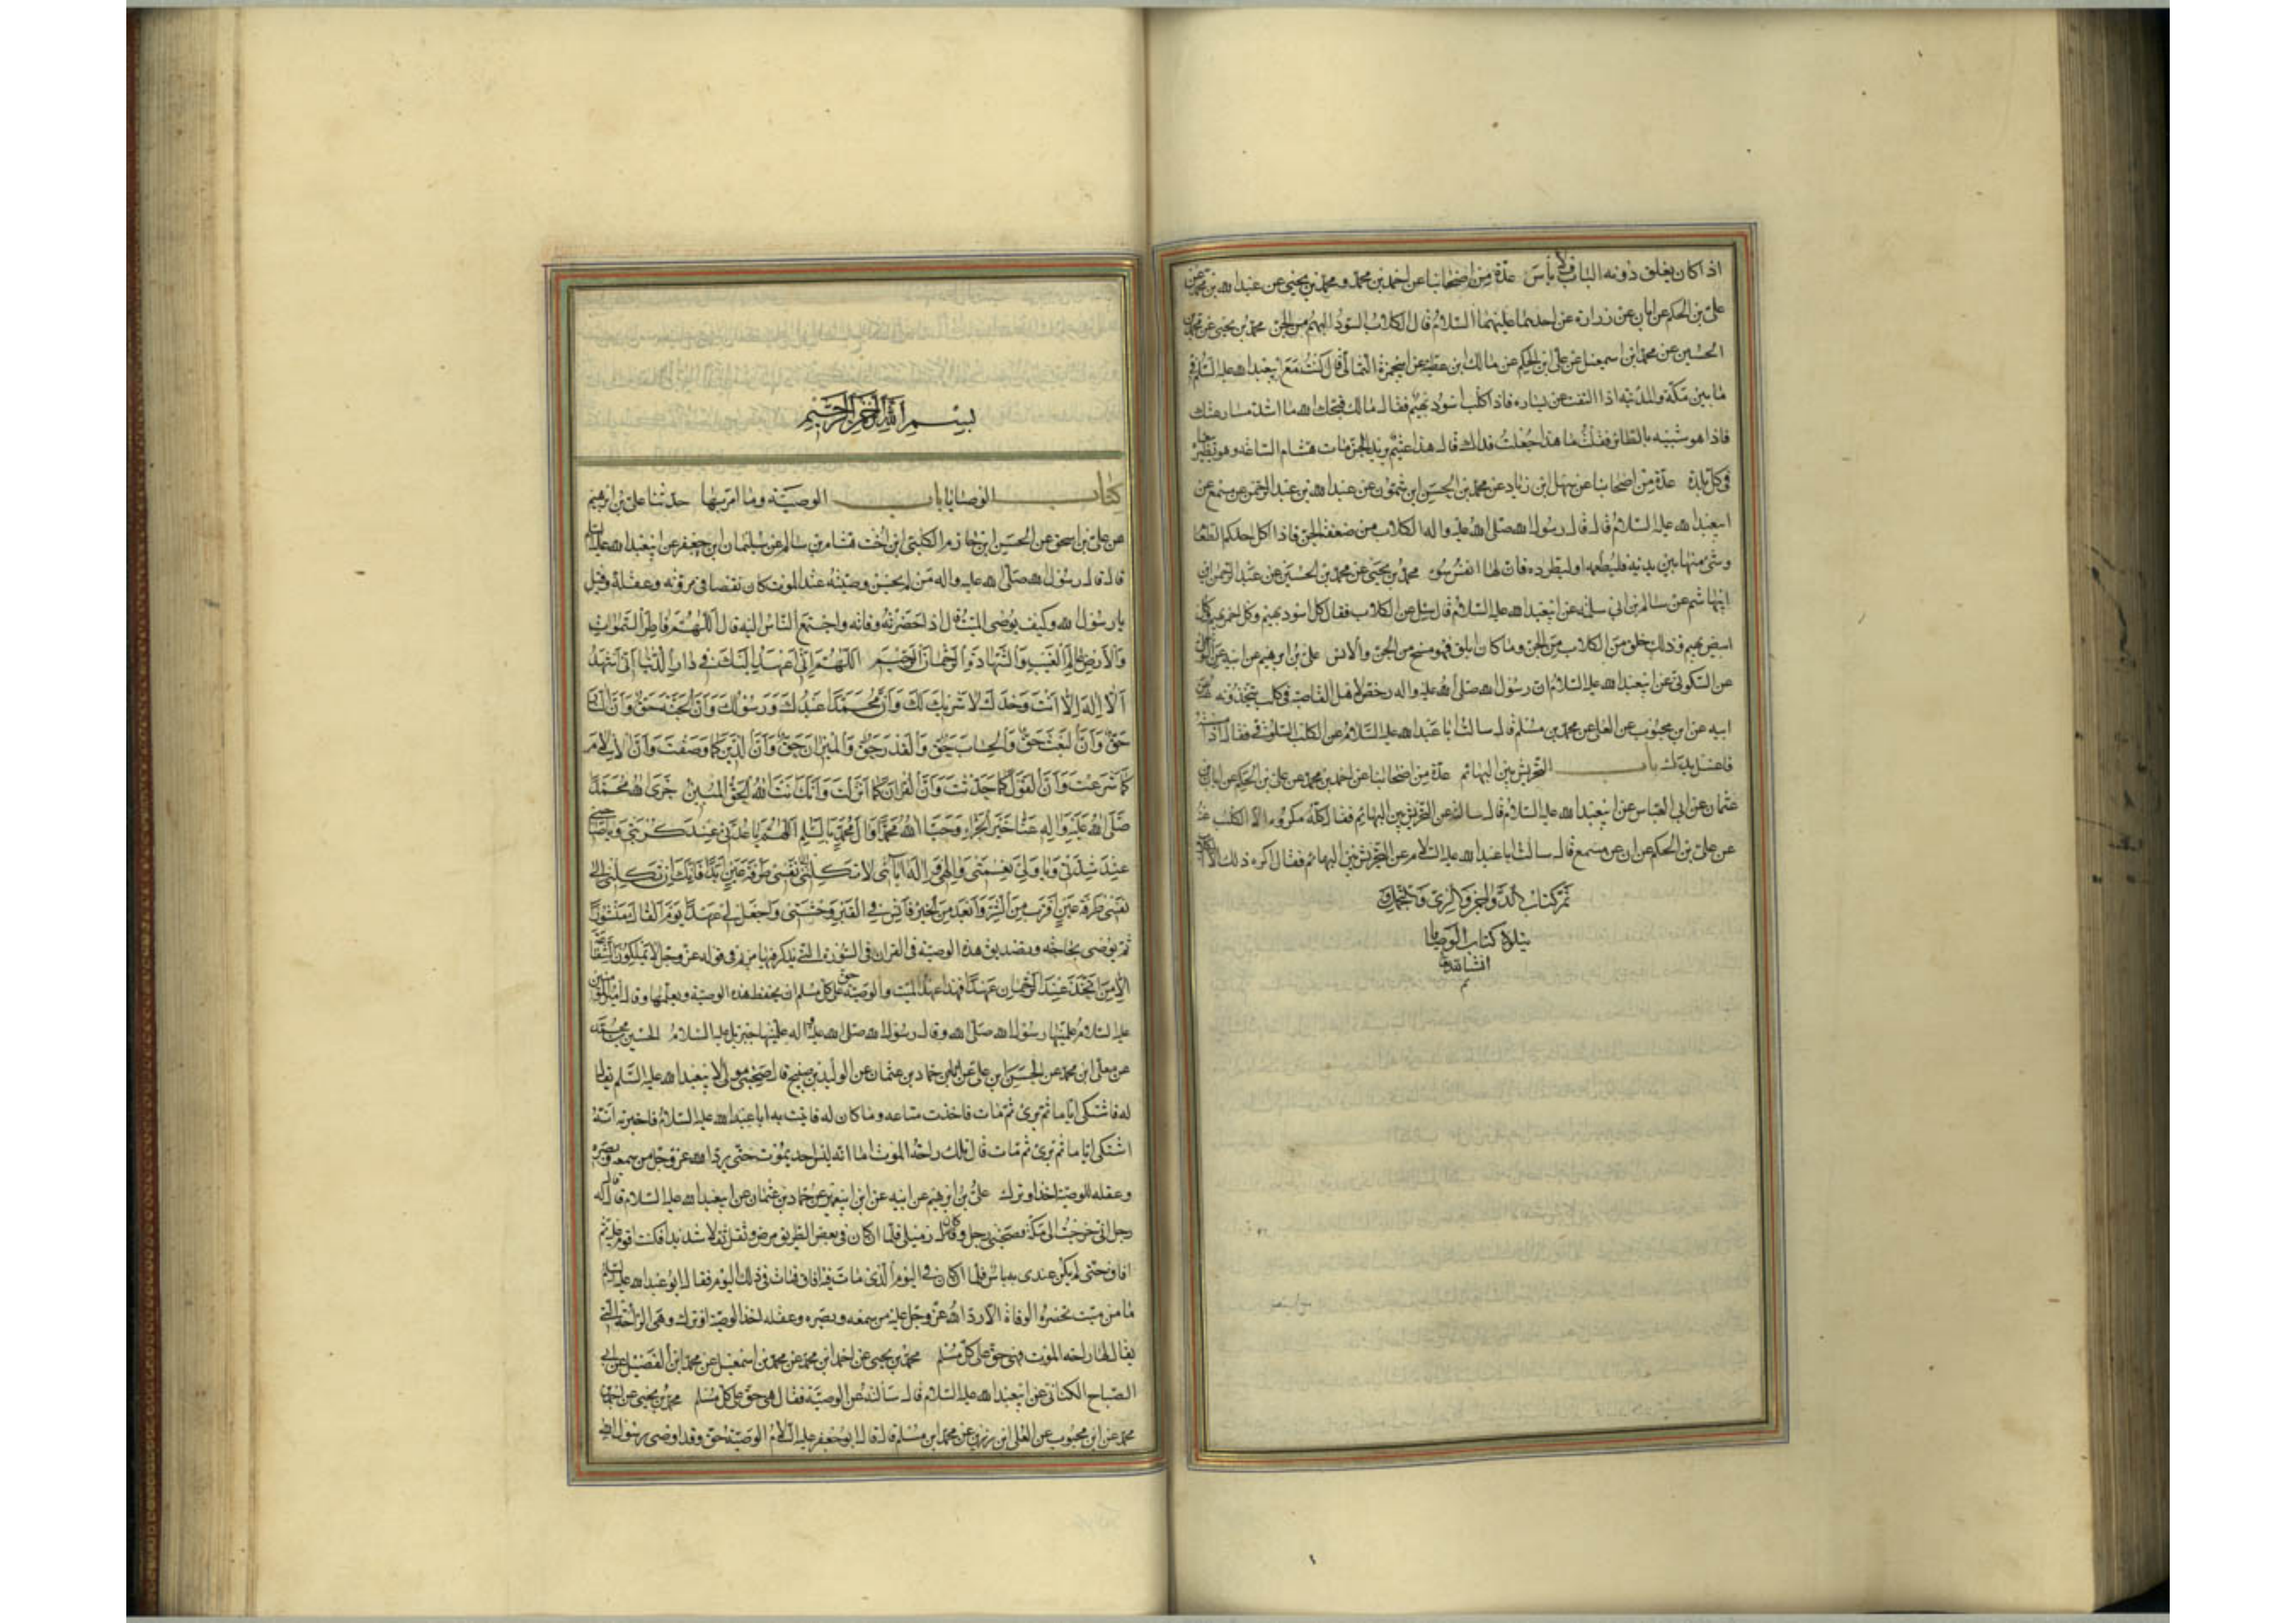 اذا كان يغلق دونه الباب فلا بأس عدّة من اصحابنا عن احمد بن محمّد و محمّد بن يحيى عن عبد الله بن محمّد عن
علىّ بن الحكم عن ابان عن زرارة عن احدهما عليهما السّلام قال الكلاب السّود البهم من الجنّ محمّد بن يحيى عن محمّد بن
الحسين عن محمّد ابن اسمعيل عن على ابن الحكم عن مالك ابن عطيّة عن ابيحمزة الثمالى قال كنت مع ابيعبد الله عليه السّلم فى
ما بين مكّة والمدينة اذا التفت عن يساره فاذا كلب اسود بهيم فقال مالك قبحك الله ما اشدّ مسارعتك
فاذا هو شبيه بالطائر فقلت ما هذا جعلت فداك قال هذا عثيم بريد الجن مات هشام الساعة وهو يطير ينعاه
فى كل بلدة عدّة من اصحابنا عن سهل ابن زياد عن محمّد بن الحسن ابن شمّون عن عبد الله بن عبد الرّحمن عن مسمع عن
ابيعبد الله عليه السّلام قال قال رسول الله صلى الله عليه واله الكلاب من ضعفة الجنّ فاذا اكل احدكم الطعام
وشئ منها بين يديه فليطعمه او ليطرده فان لها انفس سوء محمّد بن يحيى عن محمّد بن الحسين عن عبد الرحمن ابن
ابيهاشم عن سالم بن ابى سلمة عن ابيعبد الله عليه السّلام قال سئل عن الكلاب فقال كل اسود بهيم وكل احمر بهيم وكل
ابيض بهيم فذلك خلق من الكلاب من الجنّ وما كان ابلق فهو مسخ من الجنّ والانس علىّ بن ابرهيم عن ابيه عن النوفلى
عن السكونىّ عن ابيعبد الله عليه السّلام انّ رسول الله صلى الله عليه واله رخّص لاهل القاصية فى كلب يتّخذونه علىّ عن
ابيه عن ابن محبوب عن العلا عن محمّد بن مسلم قال سالت ابا عبد الله عليه السّلام عن الكلب السّلوقى فقال اذا مسسته
فاغسل يديك باب التّحريش بين البهائم عدّة من اصحابنا عن احمد بن محمّد عن علىّ بن الحكم عن ابان بن
عثمان عن ابى العباس عن ابيعبد الله عليه السّلام قال سالته عن التحريش بين البهايم فقال كلّه مكروه الّا الكلب
عن علىّ بن الحكم عن ابان عن مسمع قال سالت ابا عبد الله عليه السّلام عن التحريش بين البهائم فقال اكره ذلك الّا الكلاب
تم كتاب الدواجن
يتلوه كتاب الوصايا
انشا الله
تم
بسم الله الرحمن الرحيم
كتاب الوصايا باب الوصيّة وما امر بها حدّثنا علىّ بن ابرهيم
عن علىّ بن اسحق عن الحسن ابن حازم الكلبى ابن اخت هشام بن سالم عن سليمان ابن جعفر عن ابيعبد الله عليه السلم
قال قال رسول الله صلّى الله عليه واله من لم يحسن وصيّته عند الموت كان نقصا فى مروّته وعقله قيل
يا رسول الله وكيف يوصى الميّت قال اذا حضرته وفاته واجتمع النّاس اليه قال اللّهمّ فاطر السّموات
والارض عالم الغيب والشّهادة الرّحمن الرّحيم اللّهمّ انّى اعهد اليك فى دار الدّنيا انّى اشهد
ان لا اله الّا انت وحدك لا شريك لك وانّ محمّدا عبدك ورسولك وانّ الجنّة حقّ وانّ النّار
حقّ وانّ البعث حقّ والحساب حقّ والقدر حقّ والميزان حقّ وانّ الدّين كما وصفت وانّ الاسلام
كما شرعت وانّ القول كما حدّثت وانّ القران كما انزلت وانّك انت الله الحقّ المبين جزى الله محمّدا
صلّى الله عليه واله عنّا خير الجزاء وحيّا الله محمّدا وال محمّد بالسّلم اللّهمّ يا عدّتى عند كربتى ويا صاحبى
عند شدّتى ويا ولىّ نعمتى والهى واله آبائى لا تكلنى الى نفسى طرفة عين ابدا فانّك ان تكلنى الى
نفسى طرفة عين اقرب من الشّرّ وابعد من الخير فآنس فى القبر وحشتى واجعل لى عهدا يوم القاك منشورا
ثم يوصى بحاجته وتصديق هذه الوصيّة فى القرآن فى السّورة الّتى يذكر فيها مريم فى قوله عز وجل لا يملكون الشّفاعة
الّا من اتّخذ عند الرّحمن عهدا فهذا عهد الميّت والوصيّة حقّ على كل مسلم ان يحفظ هذه الوصيّة ويعلّمها وقال امير المؤمنين
عليه السّلام علّمنيها رسول الله صلّى الله وقال رسول الله صلى الله عليه واله علّمنيها جبرئيل عليه السّلام الحسين بن محمّد
عن معلّى ابن محمّد عن الحسن ابن على عن حماد بن عثمان عن الوليد بن صبيح قال صحبنى مولى لابيعبد الله عليه السّلم يقال
له فاشتكى ايّاما ثم برئ ثم مات فاخذت متاعه وما كان له فاتيت به ابا عبد الله عليه السّلام فاخبرته انّه
اشتكى ايّاما ثم برئ ثم مات قال تلك راحة الموت اما انّه ليس احد يموت حتّى يردّ الله عز وجل من سمعه وبصره
وعقله للوصيّة اخذ او ترك علىّ بن ابرهيم عن ابيه عن ابن ابيعمير عن حماد بن عثمان عن ابيعبد الله عليه السّلام قال قال له
رجل انّى خرجت الى مكّة فصحبنى رجل وكان زميلى فلمّا ان كان فى بعض الطّريق مرض وثقل ثقلا شديدا فكنت اقوم عليه ثم
افاق حتّى لم يكن عندى به باس فلمّا ان كان فى اليوم الّذى مات فيه افاق فمات فى ذلك اليوم فقال ابو عبد الله عليه السّلم
ما من ميّت تحضره الوفاة الّا ردّ الله عز وجل عليه من سمعه وبصره وعقله اخذ الوصيّة او ترك وهى الرّاحة الّتى
يقال لها راحة الموت فهى حقّ على كلّ مسلم محمّد بن يحيى عن احمد ابن محمّد عن محمّد بن اسمعيل عن محمّد ابن الفضيل عن ابى
الصّباح الكنانى عن ابيعبد الله عليه السّلام قال سألته عن الوصيّة فقال هى حقّ على كلّ مسلم محمّد بن يحيى عن احمد بن
محمّد عن ابن محبوب عن العلا ابن رزين عن محمّد ابن مسلم قال قال ابو جعفر عليه السّلام الوصيّة حقّ وقد اوصى رسول الله